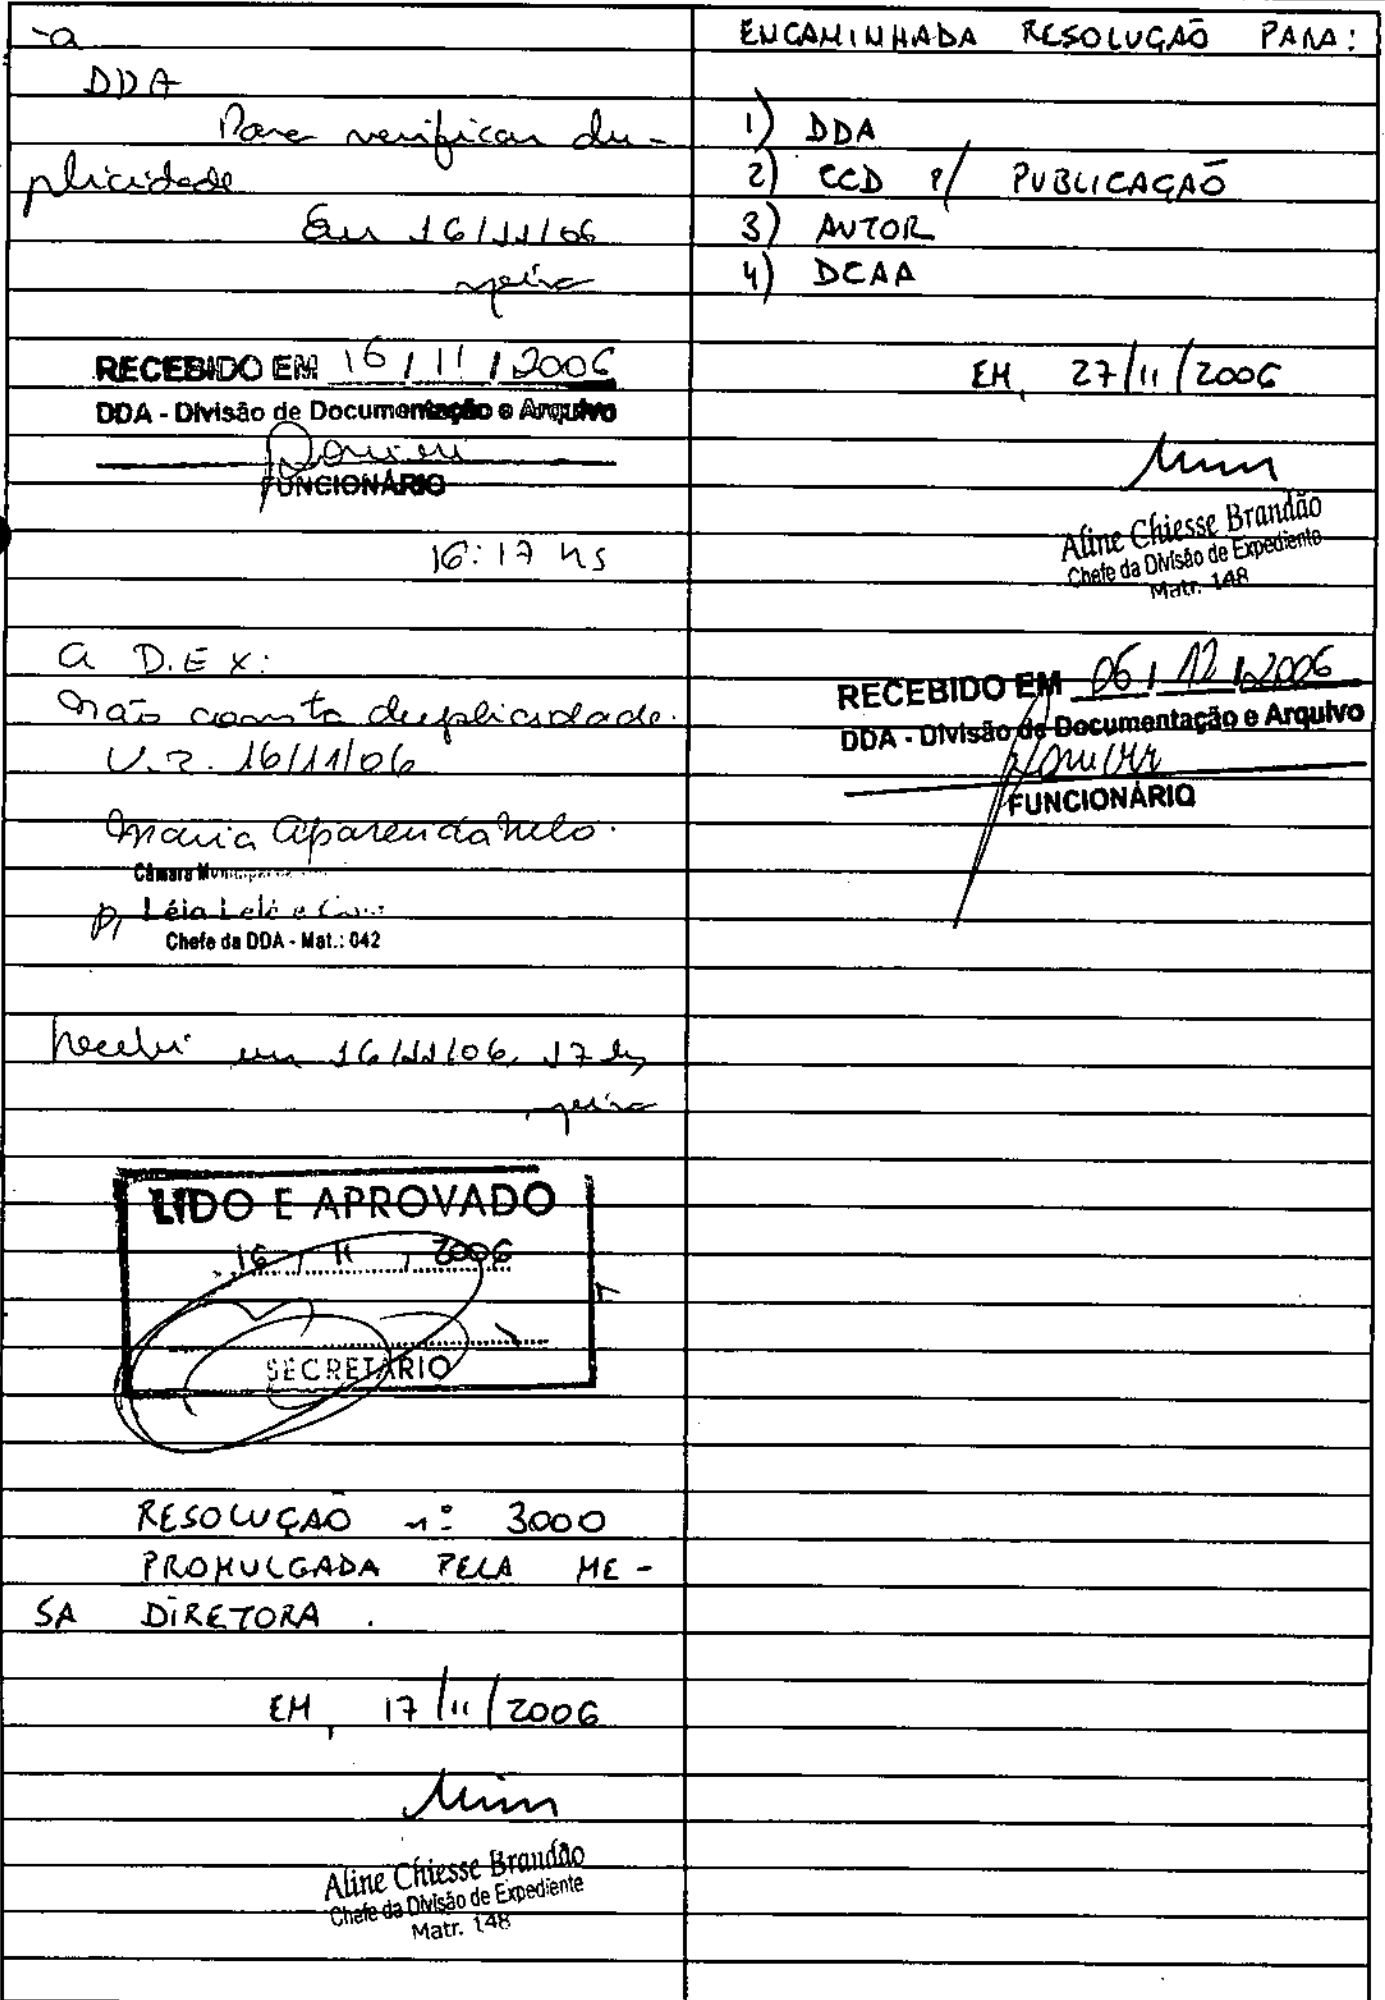 -a
DDA
Para verificar du-
plicidade
Em 16/11/06
RECEBIDO EM 16 / 11 / 2006
DDA - Divisão de Documentação e Arquivo
FUNCIONÁRIO
16:17 hs
a D.E x:
não consta duplicidade.
V.R. 16/11/06
Maria Aparecida Melo.
Câmara Municipal
P/ Léia Lelé e
Chefe da DDA - Mat.: 042
Recebi em 16/11/06, 17 hs
LIDO E APROVADO
16 / 11 / 2006
SECRETÁRIO
RESOLUÇÃO nº 3000
PROMULGADA PELA ME-
SA DIRETORA .
EM, 17/11/2006
Aline Chiesse Brandão
Chefe da Divisão de Expediente
Matr. 148
ENCAMINHADA RESOLUÇÃO PARA:
1) DDA
2) CCD P/ PUBLICAÇÃO
3) AUTOR
4) DCAA
EM, 27/11/2006
Aline Chiesse Brandão
Chefe da Divisão de Expediente
Matr. 148
RECEBIDO EM 06 / 12 / 2006
DDA - Divisão de Documentação e Arquivo
FUNCIONÁRIO